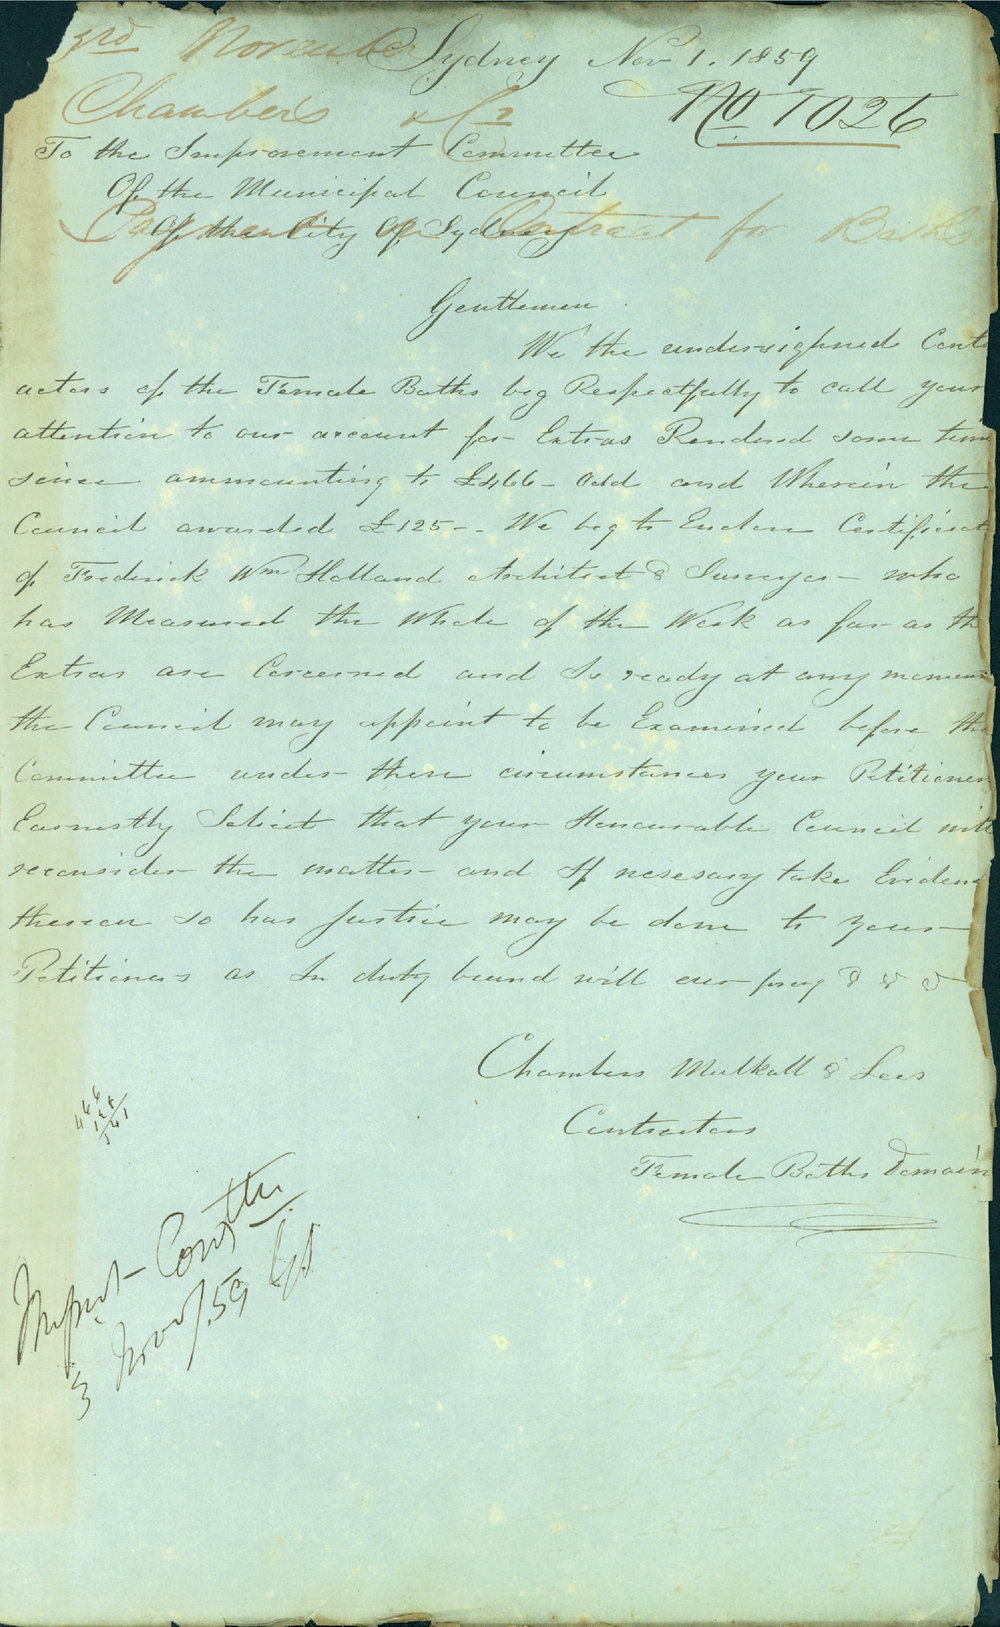 3rd November
Sydney Nov 1. 1859
Chambers & Co
No 1026
To the Improvement Committee
Of the Municipal Council
Of the City Of Sydney
Payment Contract for Baths
Gentlemen
We the undersigned Contr
actors of the Female Baths beg Respectfully to call your
attention to our account for Extras Rendered some time
since ammounting to £466- Odd and Wherein the
Council awarded £125-. We beg to Enclose Certificate
of Frederick Wm Holland Architect & Surveyor - who
has Measured the Whole of the Work as far as the
Extras are Concerned and Is ready at any moment
the Council may appoint to be Examined before the
Committee under these circumstances your Petitioners
Earnestly Solicit that your Honourable Council will
reconsider the matter and If nesesary take Evidence
thereon so has Justice may be done to your
Petitioners as In duty bound will ever pray & & &
Chambers Mulkall & Lees
Contractors
Female Baths Domain
466
125
341
Improt Comttee
3 Nov/.59